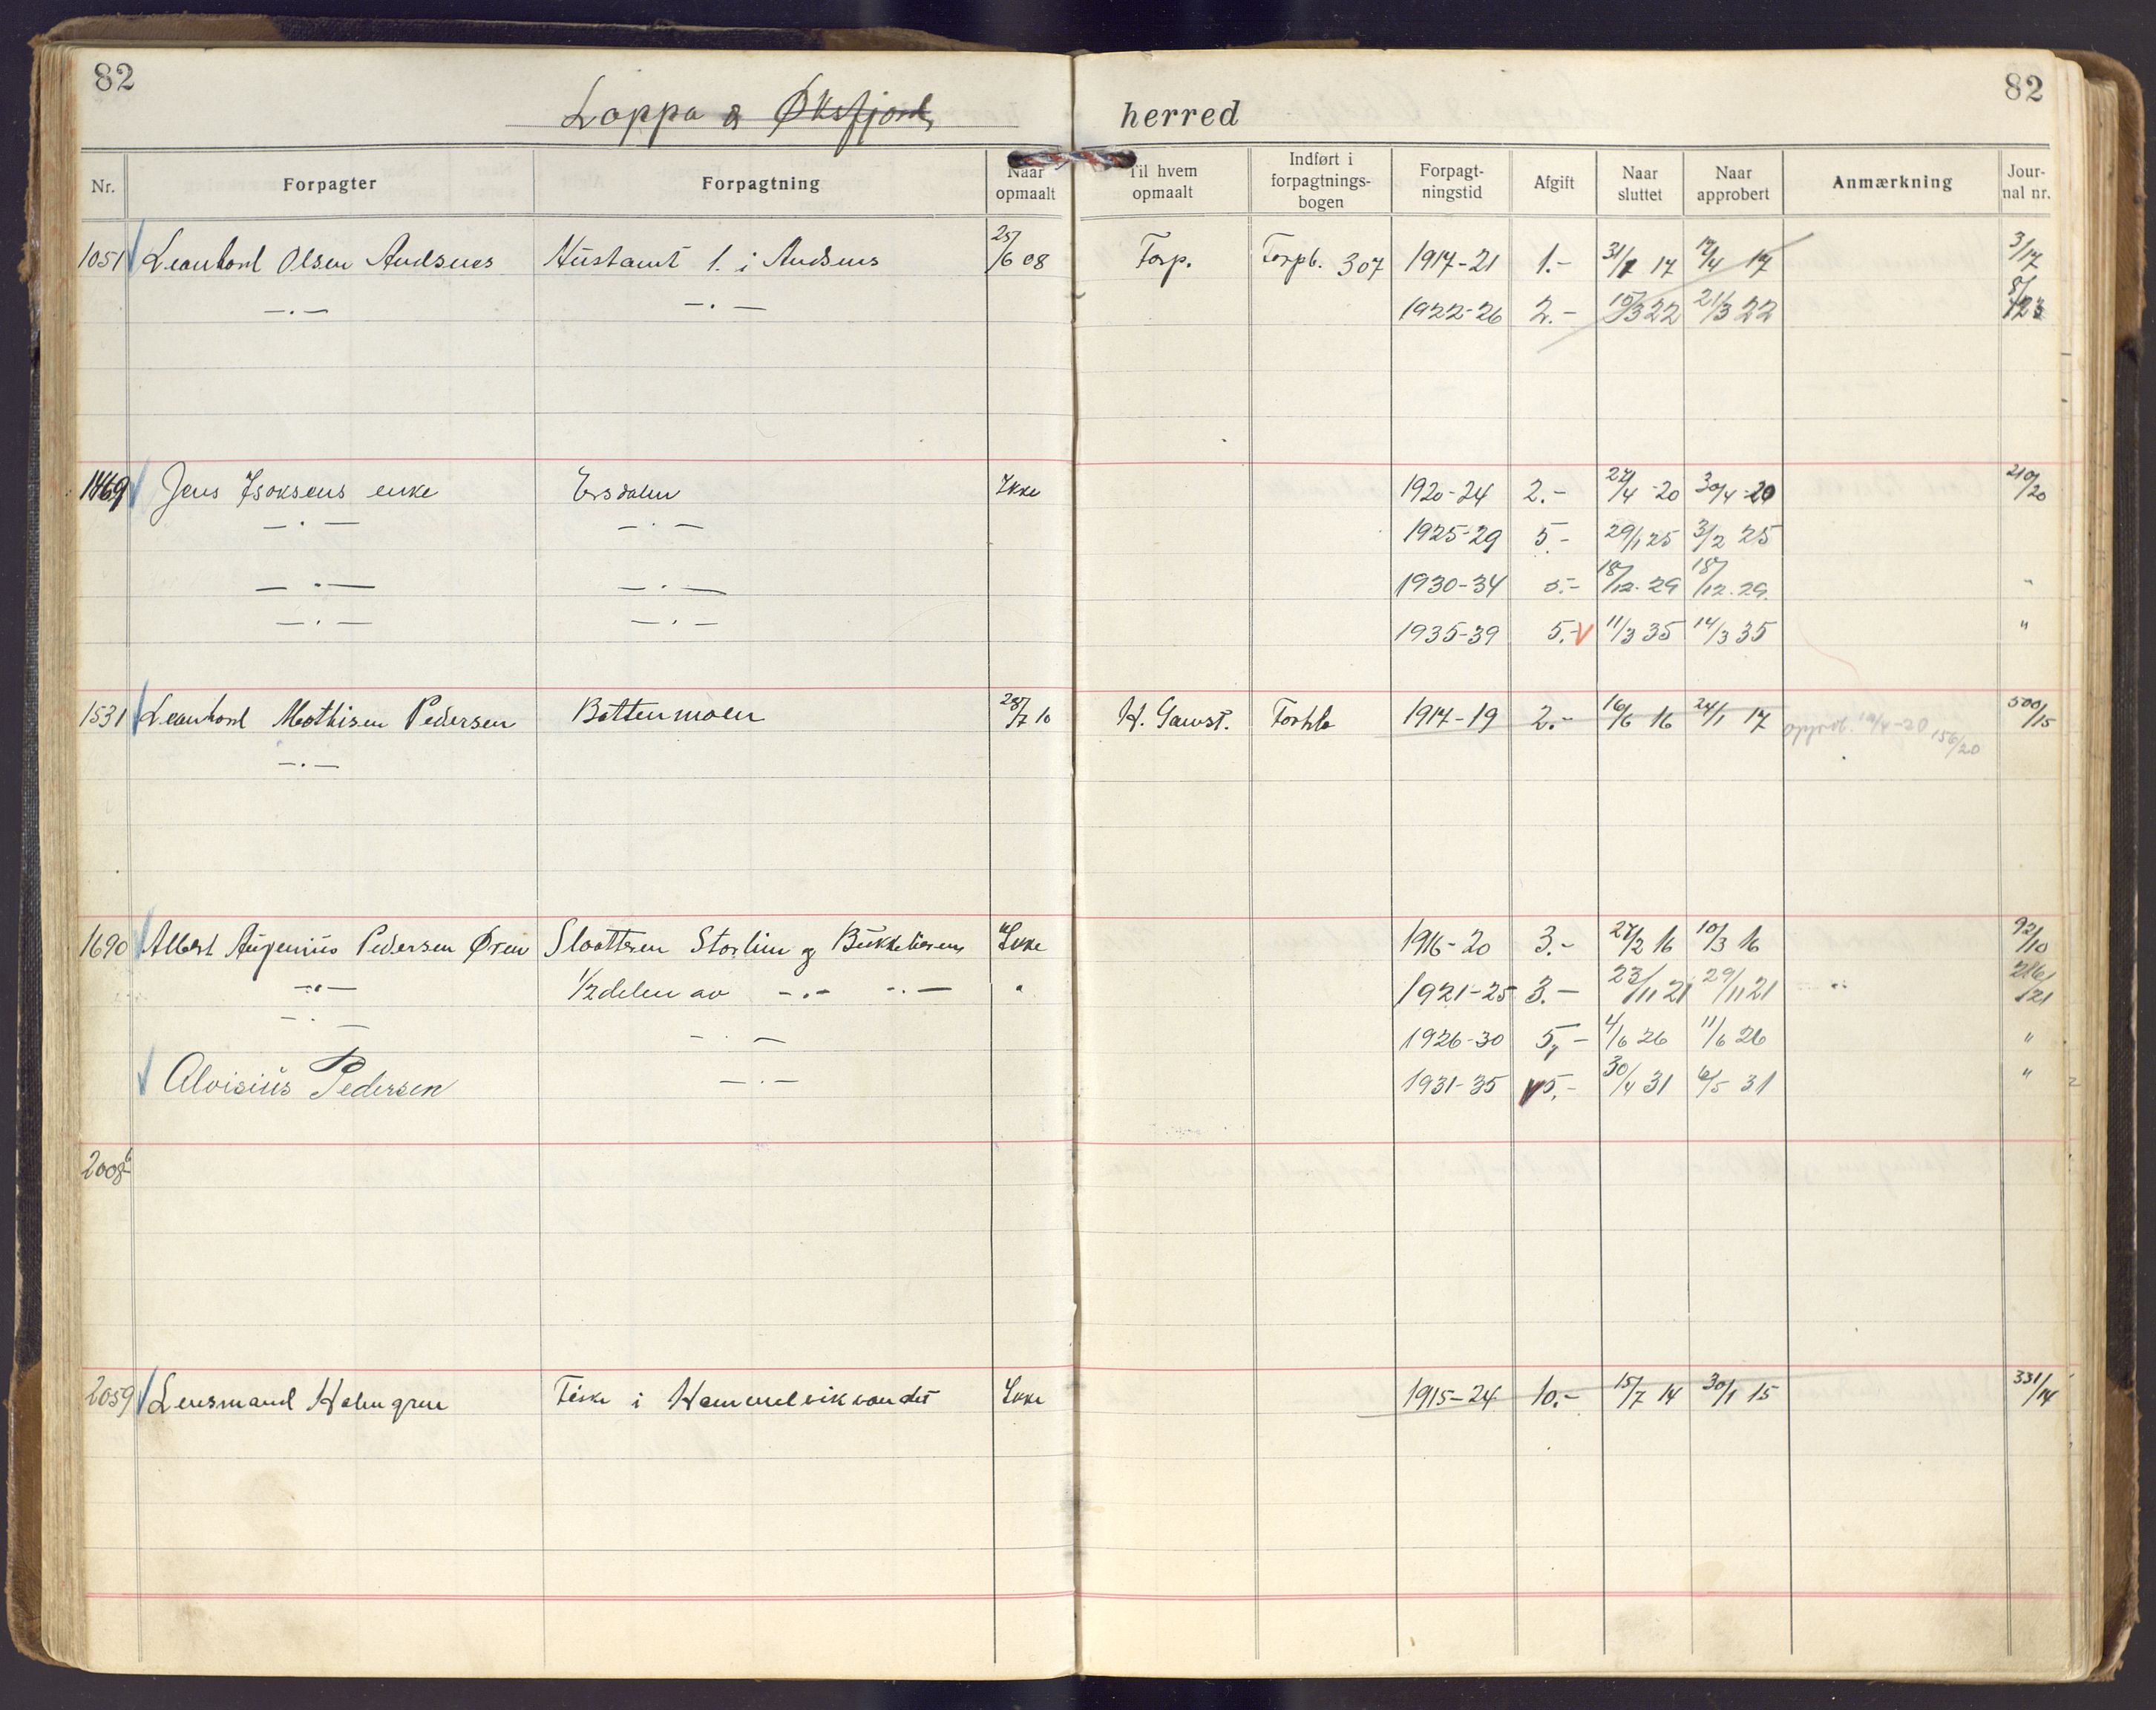 82 82
Loppa & Øksfjord herred
Nr. Forpagter Forpagtning Naar opmaalt Til hvem opmaalt Indført i forpagtnings-bogen Forpagt-ningstid Afgift Naar sluttet Naar approbert Anmærkning Jour-nal nr.
1051 Leonhard Olsen Andsnes 1. i Andsnes 25/6 08 Forp. Forpb. 307 1917-21 1.- 17 17/4 17 3/17
—.— —.— 1922-26 2.- 15/3 22 21/3 22
1469 Jens Isaksens enke Ersdalen Ikke 1920-24 2.- 27/4 -20 30/4 -20 210/20
—.— —.— 1925-29 5.- 29/1 25 3/2 25
—.— —.— 1930-34 5.- 18/12. 29 18/12. 29. "
—.— —.— 1935-39 5.- V 11/3 35 14/3 35 "
1531 Leonhard Mathisen Pedersen Bottenmoen 28/7 10 H. Gawst. 1917-19 2.- 16/6 16 24/1 17 approb. 10/4-20 156/20 500/15
—.—
1690 Albert Pedersen Øren Slaatten Storlien og Ikke 1916-20 3.- 27/2 16 10/3 16 92/10
—.— 1/2 delen av —.— —.— " 1921-25 3.- 23/11 21 29/11 21 216/21
—.— —.— 1926-30 5,- 4/6 26 11/6 26 "
Aloisius Pedersen —.— 1931-35 V 5.- 30/4 31 6/5 31 "
2008 b
2059 Lensmand Holmgren Fiske i Hammelvikvandet Ikke 1915-24 10.- 15/7 14 30/1 15 331/14